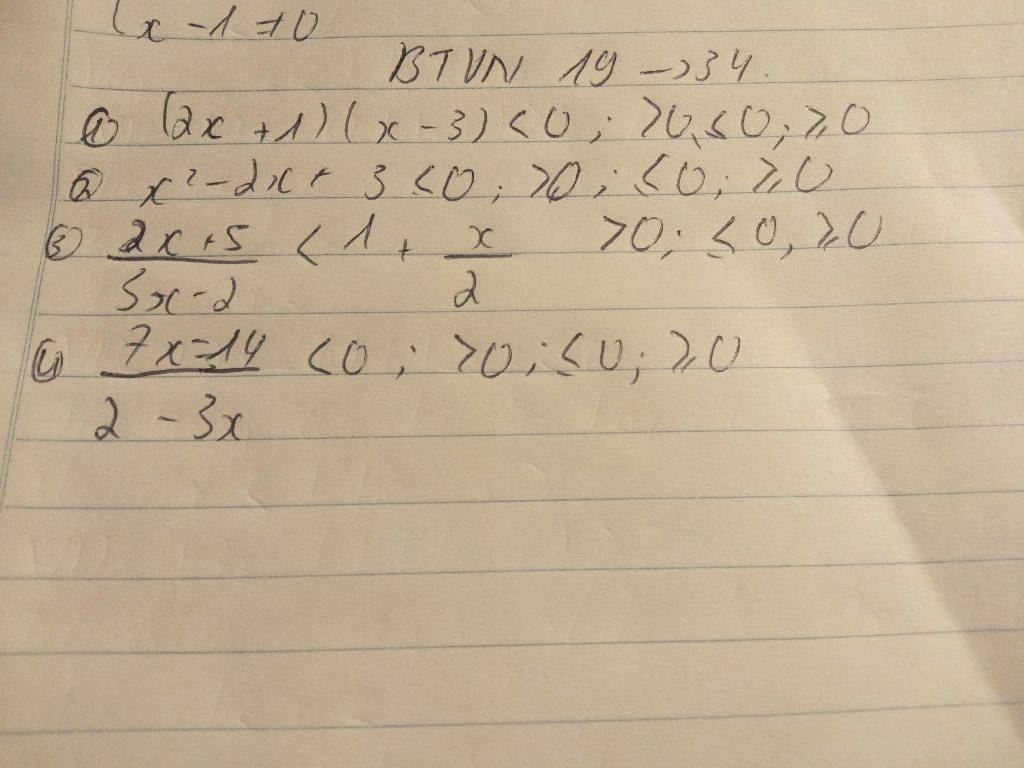 x - 1 ≠ 0
BTVN 19 → 34.
① (2x + 1)(x - 3) < 0 ; > 0; ≤ 0; ≥ 0
② x² - 2x + 3 < 0 ; > 0 ; ≤ 0 ; ≥ 0
③ (2x + 5)/(5x - 2) < 1 + x/2 > 0; ≤ 0, ≥ 0
④ (7x - 14)/(2 - 3x) < 0 ; > 0 ; ≤ 0; ≥ 0